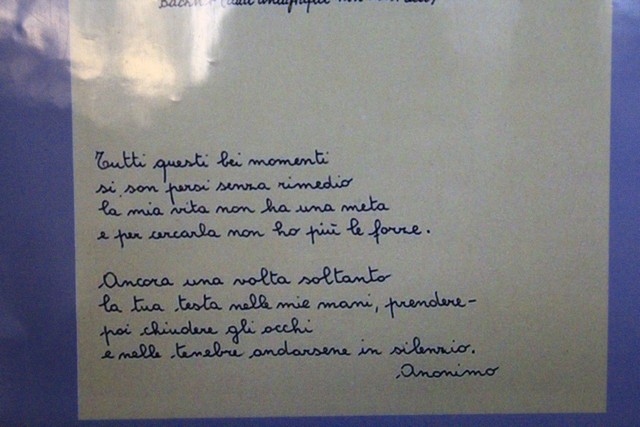 Tutti questi bei momenti
si son persi senza rimedio
la mia vita non ha una meta
e per cercarla non ho più le forze.
Ancora una volta soltanto
la tua testa nelle mie mani, prendere-
poi chiudere gli occhi
e nelle tenebre andarsene in silenzio.
Anonimo